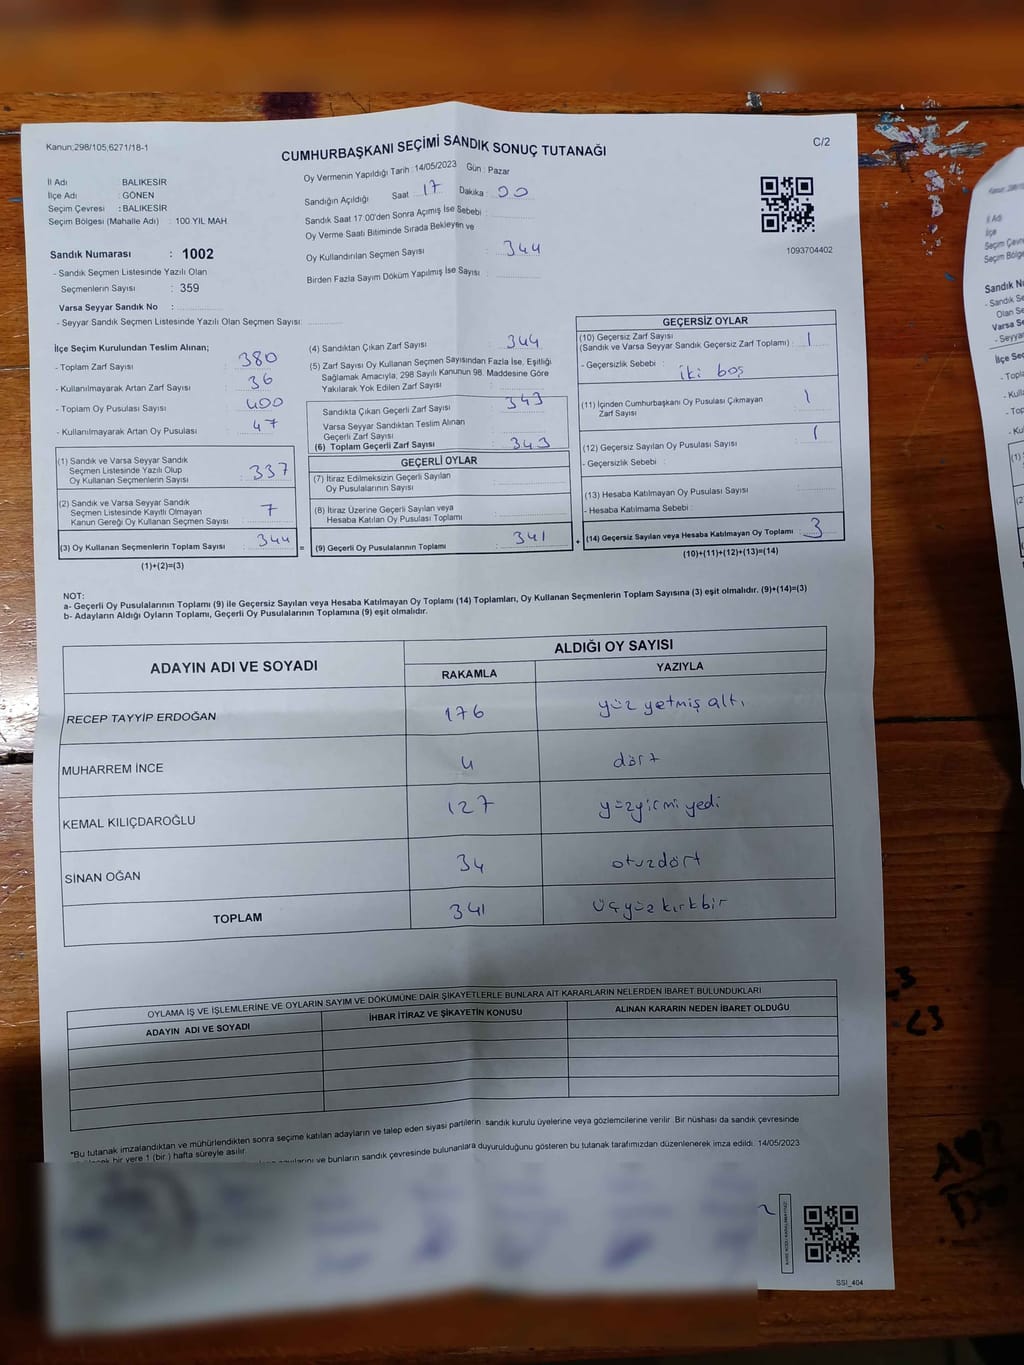 Kanun;298/105,6271/18-1
CUMHURBAŞKANI SEÇİMİ SANDIK SONUÇ TUTANAĞI
C/2
Oy Vermenin Yapıldığı Tarih : 14/05/2023 Gün : Pazar
İl Adı : BALIKESİR
İlçe Adı : GÖNEN
Seçim Çevresi : BALIKESİR
Seçim Bölgesi (Mahalle Adı) : 100.YIL MAH.
Sandığın Açıldığı Saat : 17 Dakika : 00
Sandık Saat 17:00'den Sonra Açılmış İse Sebebi :
Oy Verme Saati Bitiminde Sırada Bekleyen ve
Oy Kullandırılan Seçmen Sayısı : 344
Birden Fazla Sayım Döküm Yapılmış İse Sayısı :
1093704402
Sandık Numarası : 1002
- Sandık Seçmen Listesinde Yazılı Olan
Seçmenlerin Sayısı : 359
Varsa Seyyar Sandık No :
- Seyyar Sandık Seçmen Listesinde Yazılı Olan Seçmen Sayısı:
İlçe Seçim Kurulundan Teslim Alınan;
- Toplam Zarf Sayısı : 380
- Kullanılmayarak Artan Zarf Sayısı : 36
- Toplam Oy Pusulası Sayısı : 400
- Kullanılmayarak Artan Oy Pusulası : 47
(1) Sandık ve Varsa Seyyar Sandık
Seçmen Listesinde Yazılı Olup
Oy Kullanan Seçmenlerin Sayısı : 337
(2) Sandık ve Varsa Seyyar Sandık
Seçmen Listesinde Kayıtlı Olmayan
Kanun Gereği Oy Kullanan Seçmen Sayısı : 7
(3) Oy Kullanan Seçmenlerin Toplam Sayısı : 344
(1)+(2)=(3)
(4) Sandıktan Çıkan Zarf Sayısı : 344
(5) Zarf Sayısı Oy Kullanan Seçmen Sayısından Fazla İse, Eşitliği
Sağlamak Amacıyla, 298 Sayılı Kanunun 98. Maddesine Göre
Yakılarak Yok Edilen Zarf Sayısı :
Sandıkta Çıkan Geçerli Zarf Sayısı : 343
Varsa Seyyar Sandıktan Teslim Alınan
Geçerli Zarf Sayısı :
(6) Toplam Geçerli Zarf Sayısı : 343
GEÇERLİ OYLAR
(7) İtiraz Edilmeksizin Geçerli Sayılan
Oy Pusulalarının Sayısı :
(8) İtiraz Üzerine Geçerli Sayılan veya
Hesaba Katılan Oy Pusulası Toplamı :
= (9) Geçerli Oy Pusulalarının Toplamı : 341
GEÇERSİZ OYLAR
(10) Geçersiz Zarf Sayısı
(Sandık ve Varsa Seyyar Sandık Geçersiz Zarf Toplamı) : 1
- Geçersizlik Sebebi : iki boş
(11) İçinden Cumhurbaşkanı Oy Pusulası Çıkmayan
Zarf Sayısı : 1
(12) Geçersiz Sayılan Oy Pusulası Sayısı : 1
- Geçersizlik Sebebi :
(13) Hesaba Katılmayan Oy Pusulası Sayısı :
- Hesaba Katılmama Sebebi :
+ (14) Geçersiz Sayılan veya Hesaba Katılmayan Oy Toplamı : 3
(10)+(11)+(12)+(13)=(14)
NOT:
a- Geçerli Oy Pusulalarının Toplamı (9) ile Geçersiz Sayılan veya Hesaba Katılmayan Oy Toplamı (14) Toplamları, Oy Kullanan Seçmenlerin Toplam Sayısına (3) eşit olmalıdır. (9)+(14)=(3)
b- Adayların Aldığı Oyların Toplamı, Geçerli Oy Pusulalarının Toplamına (9) eşit olmalıdır.
ADAYIN ADI VE SOYADI
ALDIĞI OY SAYISI
RAKAMLA YAZIYLA
RECEP TAYYİP ERDOĞAN 176 yüz yetmiş altı
MUHARREM İNCE 4 dört
KEMAL KILIÇDAROĞLU 127 yüzyirmi yedi
SİNAN OĞAN 34 otuzdört
TOPLAM 341 üçyüz kırkbir
OYLAMA İŞ VE İŞLEMLERİNE VE OYLARIN SAYIM VE DÖKÜMÜNE DAİR ŞİKAYETLERLE BUNLARA AİT KARARLARIN NELERDEN İBARET BULUNDUKLARI
ADAYIN ADI VE SOYADI İHBAR İTİRAZ VE ŞİKAYETİN KONUSU ALINAN KARARIN NEDEN İBARET OLDUĞU
*Bu tutanak imzalandıktan ve mühürlendikten sonra seçime katılan adayların ve talep eden siyasi partilerin sandık kurulu üyelerine veya gözlemcilerine verilir. Bir nüshası da sandık çevresinde
bir yere 1 (bir) hafta süreyle asılır.
ve bunların sandık çevresinde bulunanlara duyurulduğunu gösteren bu tutanak tarafımızdan düzenlenerek imza edildi. 14/05/2023
SSI_404